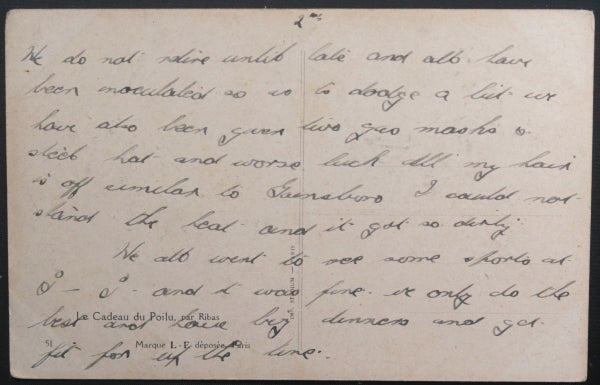 2nd
We do not retire until late and all have
been inoculated so as to dodge a bit we
have also been given two gas masks &
steel hat and worse luck all my hair
is off similar to Gainsboro I could not
stand the heat and it got so dirty
We all went to see some sports at
and it was fine. we only do the
best and have big dinners and get
Le Cadeau du Poilu, par Ribas
fit for up the line.
51 Marque L-E déposée, Paris
IMP. STADIUM — PARIS